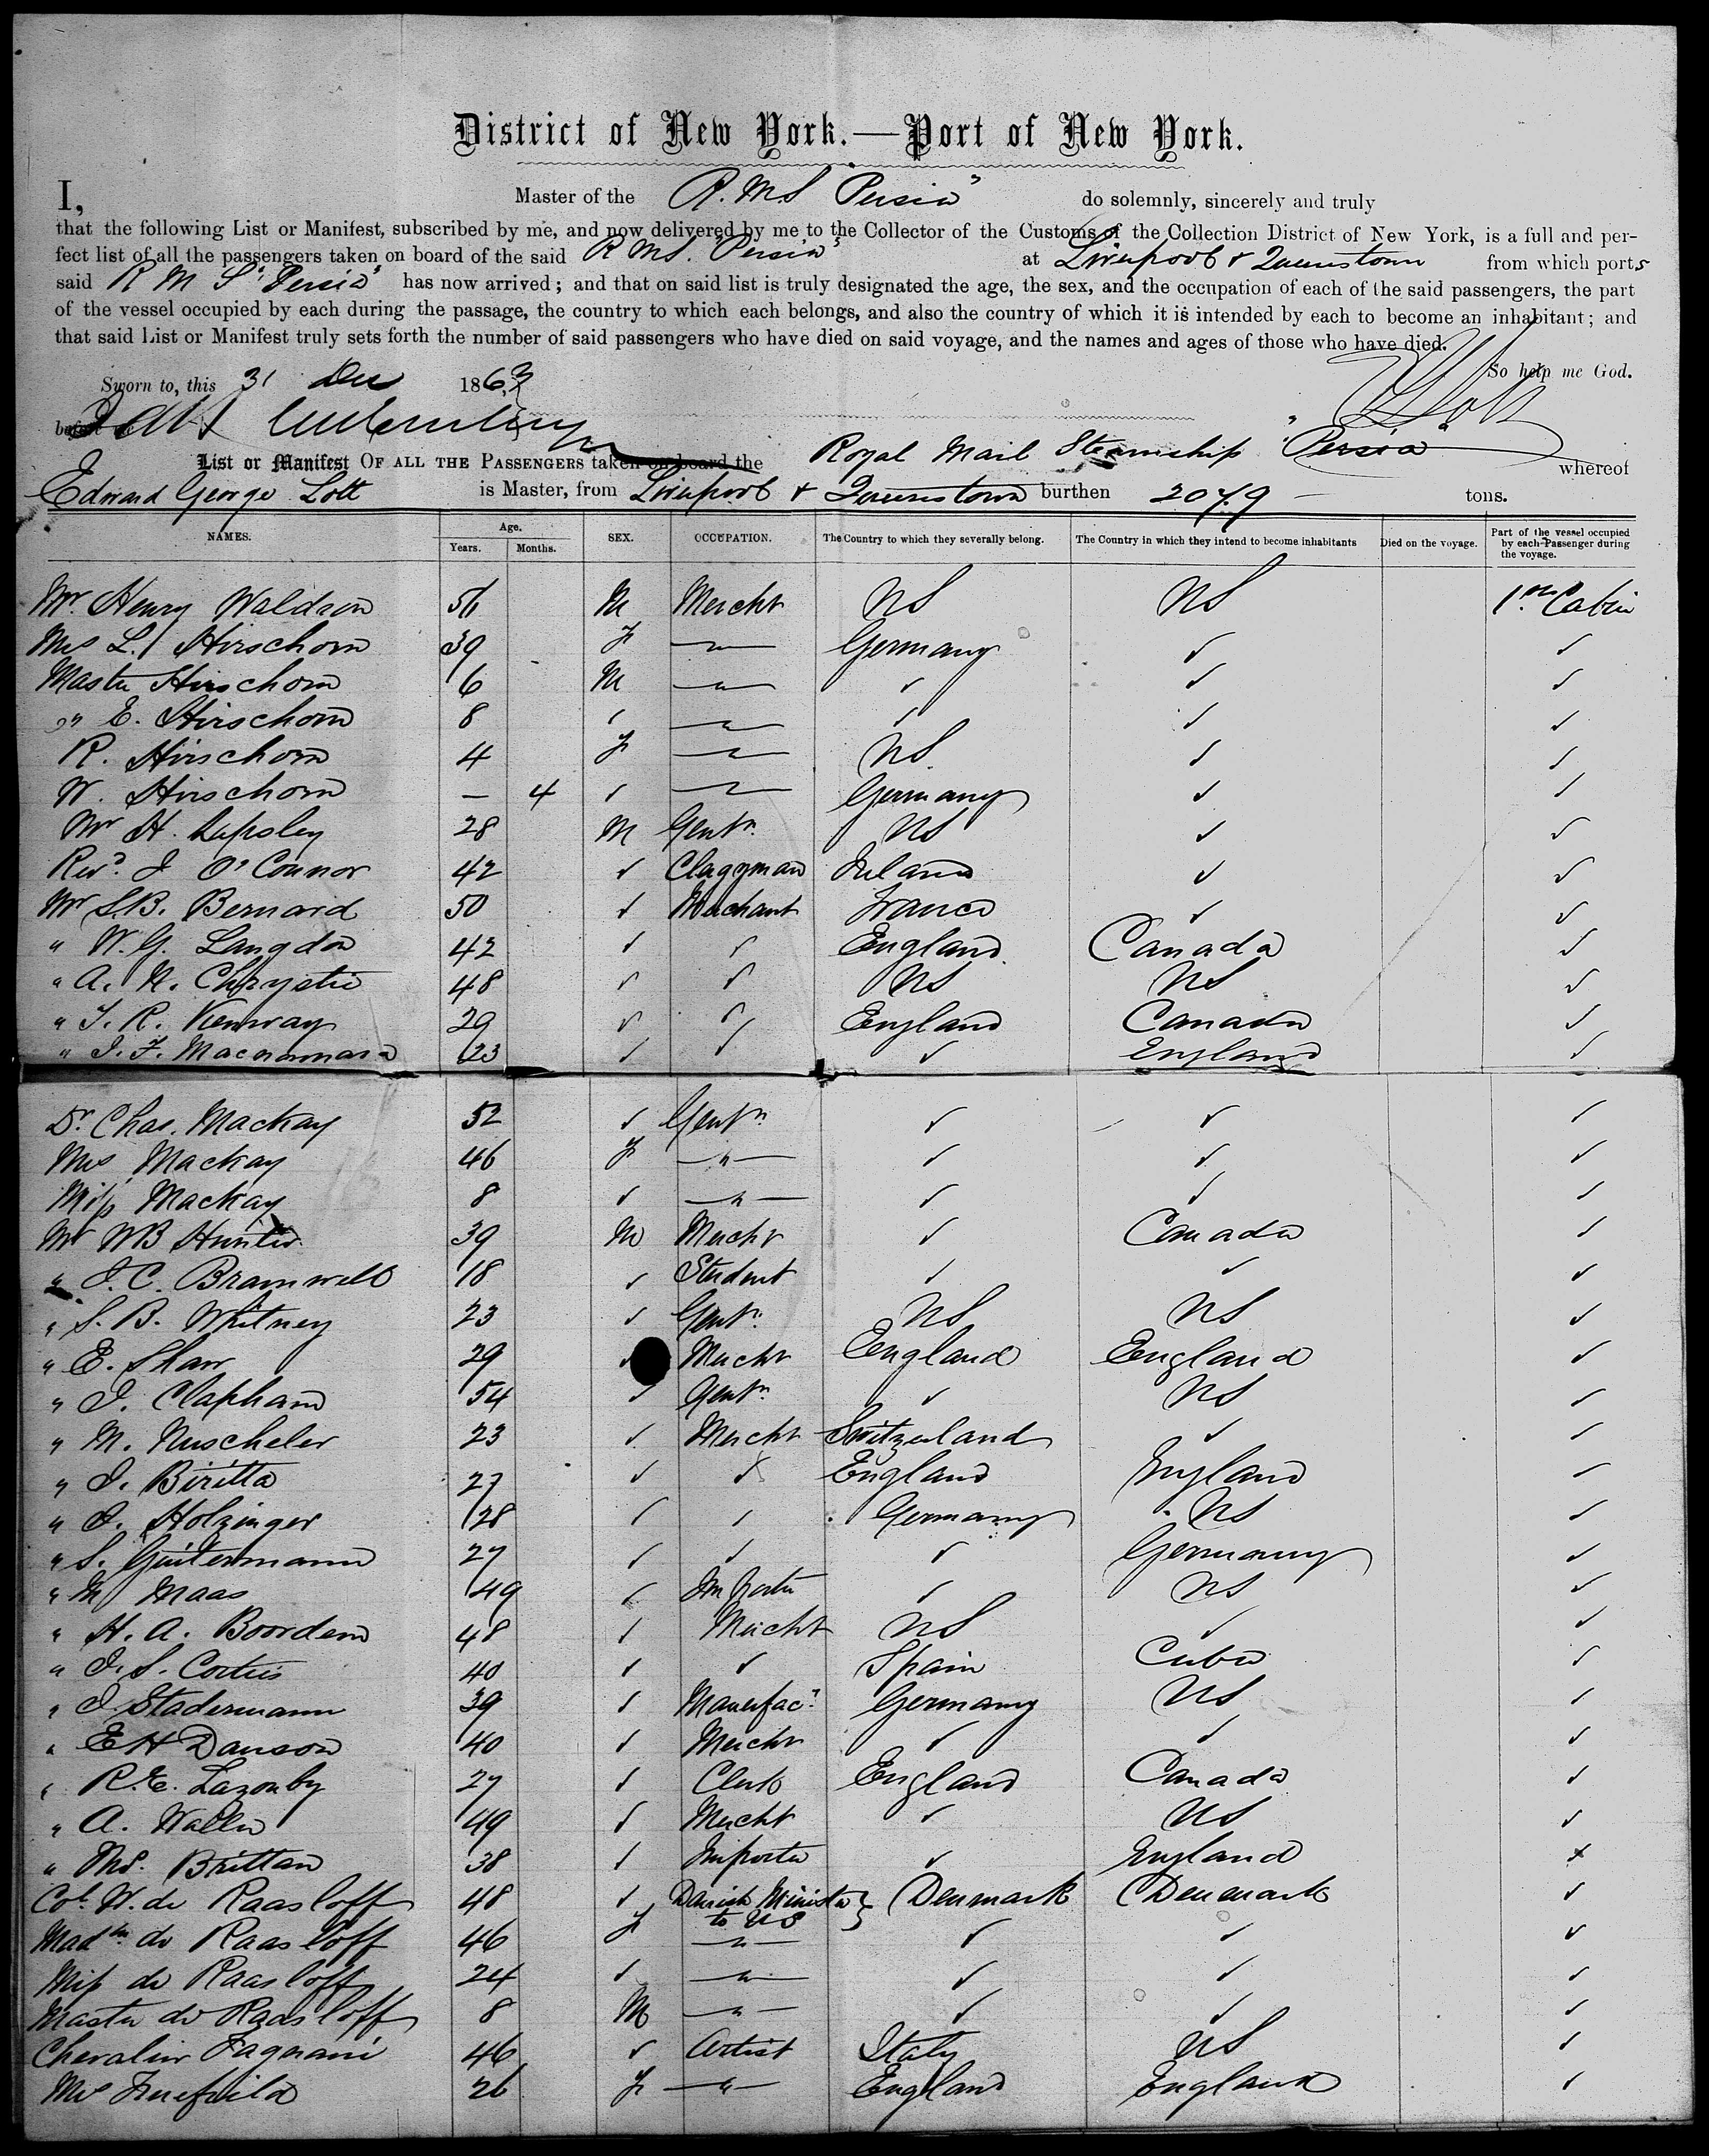 District of New York.—Port of New York.
I, Master of the R.M.S "Persia" do solemnly, sincerely and truly
that the following List or Manifest, subscribed by me, and now delivered by me to the Collector of the Customs of the Collection District of New York, is a full and per-
fect list of all the passengers taken on board of the said R M S. "Persia" at Liverpool & Queenstown from which ports
said R M S "Persia" has now arrived; and that on said list is truly designated the age, the sex, and the occupation of each of the said passengers, the part
of the vessel occupied by each during the passage, the country to which each belongs, and also the country of which it is intended by each to become an inhabitant; and
that said List or Manifest truly sets forth the number of said passengers who have died on said voyage, and the names and ages of those who have died.
So help me God.
Sworn to, this 31 Dec 1863
before me
E G Lott
List or Manifest OF ALL THE PASSENGERS taken on board the Royal Mail Steamship "Persia" whereof
Edward George Lott is Master, from Liverpool & Queenstown burthen 2079 tons.
NAMES. Age. Years. Months. SEX. OCCUPATION. The Country to which they severally belong. The Country in which they intend to become inhabitants Died on the voyage. Part of the vessel occupied by each Passenger during the voyage.
Mr. Henry Waldron 56 M Mercht US US 1st Cabin
Mrs L. Hirschorn 39 F — " — Germany ✓ ✓
Master Hirschorn 6 M — " — ✓ ✓ ✓
" E. Hirschorn 8 ✓ — " — ✓ ✓ ✓
R. Hirschorn 4 F — " — US ✓ ✓
W. Hirschorn — 4 ✓ — " — Germany ✓ ✓
Mr H. Lipsley 28 M Gentn. US ✓ ✓
Revd. J O'Connor 42 ✓ Clergyman Ireland ✓ ✓
Mr S.B. Bernard 50 ✓ Merchant France ✓ ✓
" W.G. Langdon 42 ✓ ✓ England Canada ✓
" A. N. Chrystie 48 ✓ ✓ US US ✓
" T. R. Kenway 29 ✓ ✓ England Canada ✓
" J. F. Macnamara 23 ✓ ✓ ✓ England ✓
Dr. Chas. Mackay 52 ✓ Gentn. ✓ ✓ ✓
Mrs Mackay 46 F — " — ✓ ✓ ✓
Miss Mackay 8 ✓ — " — ✓ ✓ ✓
Mr WB Hunter 39 M Mercht ✓ Canada ✓
" J. C. Bramwell 18 ✓ Student ✓ ✓ ✓
" S. B. Whitney 23 ✓ Gentn. US US ✓
" E. Shaw 29 ✓ Mercht England England ✓
" J. Clapham 54 ✓ Gentn. ✓ US ✓
" M. Nuscheler 23 ✓ Mercht Switzerland ✓ ✓
" J. Biritta 27 ✓ ✓ England England ✓
" J. Holzinger 28 ✓ ✓ Germany US ✓
" S. Guitermann 27 ✓ ✓ ✓ Germany ✓
" M Maas 49 ✓ Importer ✓ US ✓
" H. A. Boordem 48 ✓ Mercht US ✓ ✓
" J. S. Corties 40 ✓ ✓ Spain Cuba ✓
" J Stadermann 39 ✓ Manufacr. Germany US ✓
" E H Danson 40 ✓ Mercht ✓ ✓ ✓
" R.E. Lazonby 27 ✓ Clerk England Canada ✓
" A. Waller 49 ✓ Mercht ✓ US ✓
" Ths. Brittan 38 ✓ Importer ✓ England ✓
Col. W. de Raasloff 48 ✓ Danish Minister to US } Denmark Denmark ✓
Madm. de Raasloff 46 F — " — ✓ ✓ ✓
Miss de Raasloff 24 ✓ — " — ✓ ✓ ✓
Master de Raasloff 8 M — " — ✓ ✓ ✓
Chevalier Fagnani 46 ✓ Artist Italy US ✓
Mrs 26 F — " — England England ✓